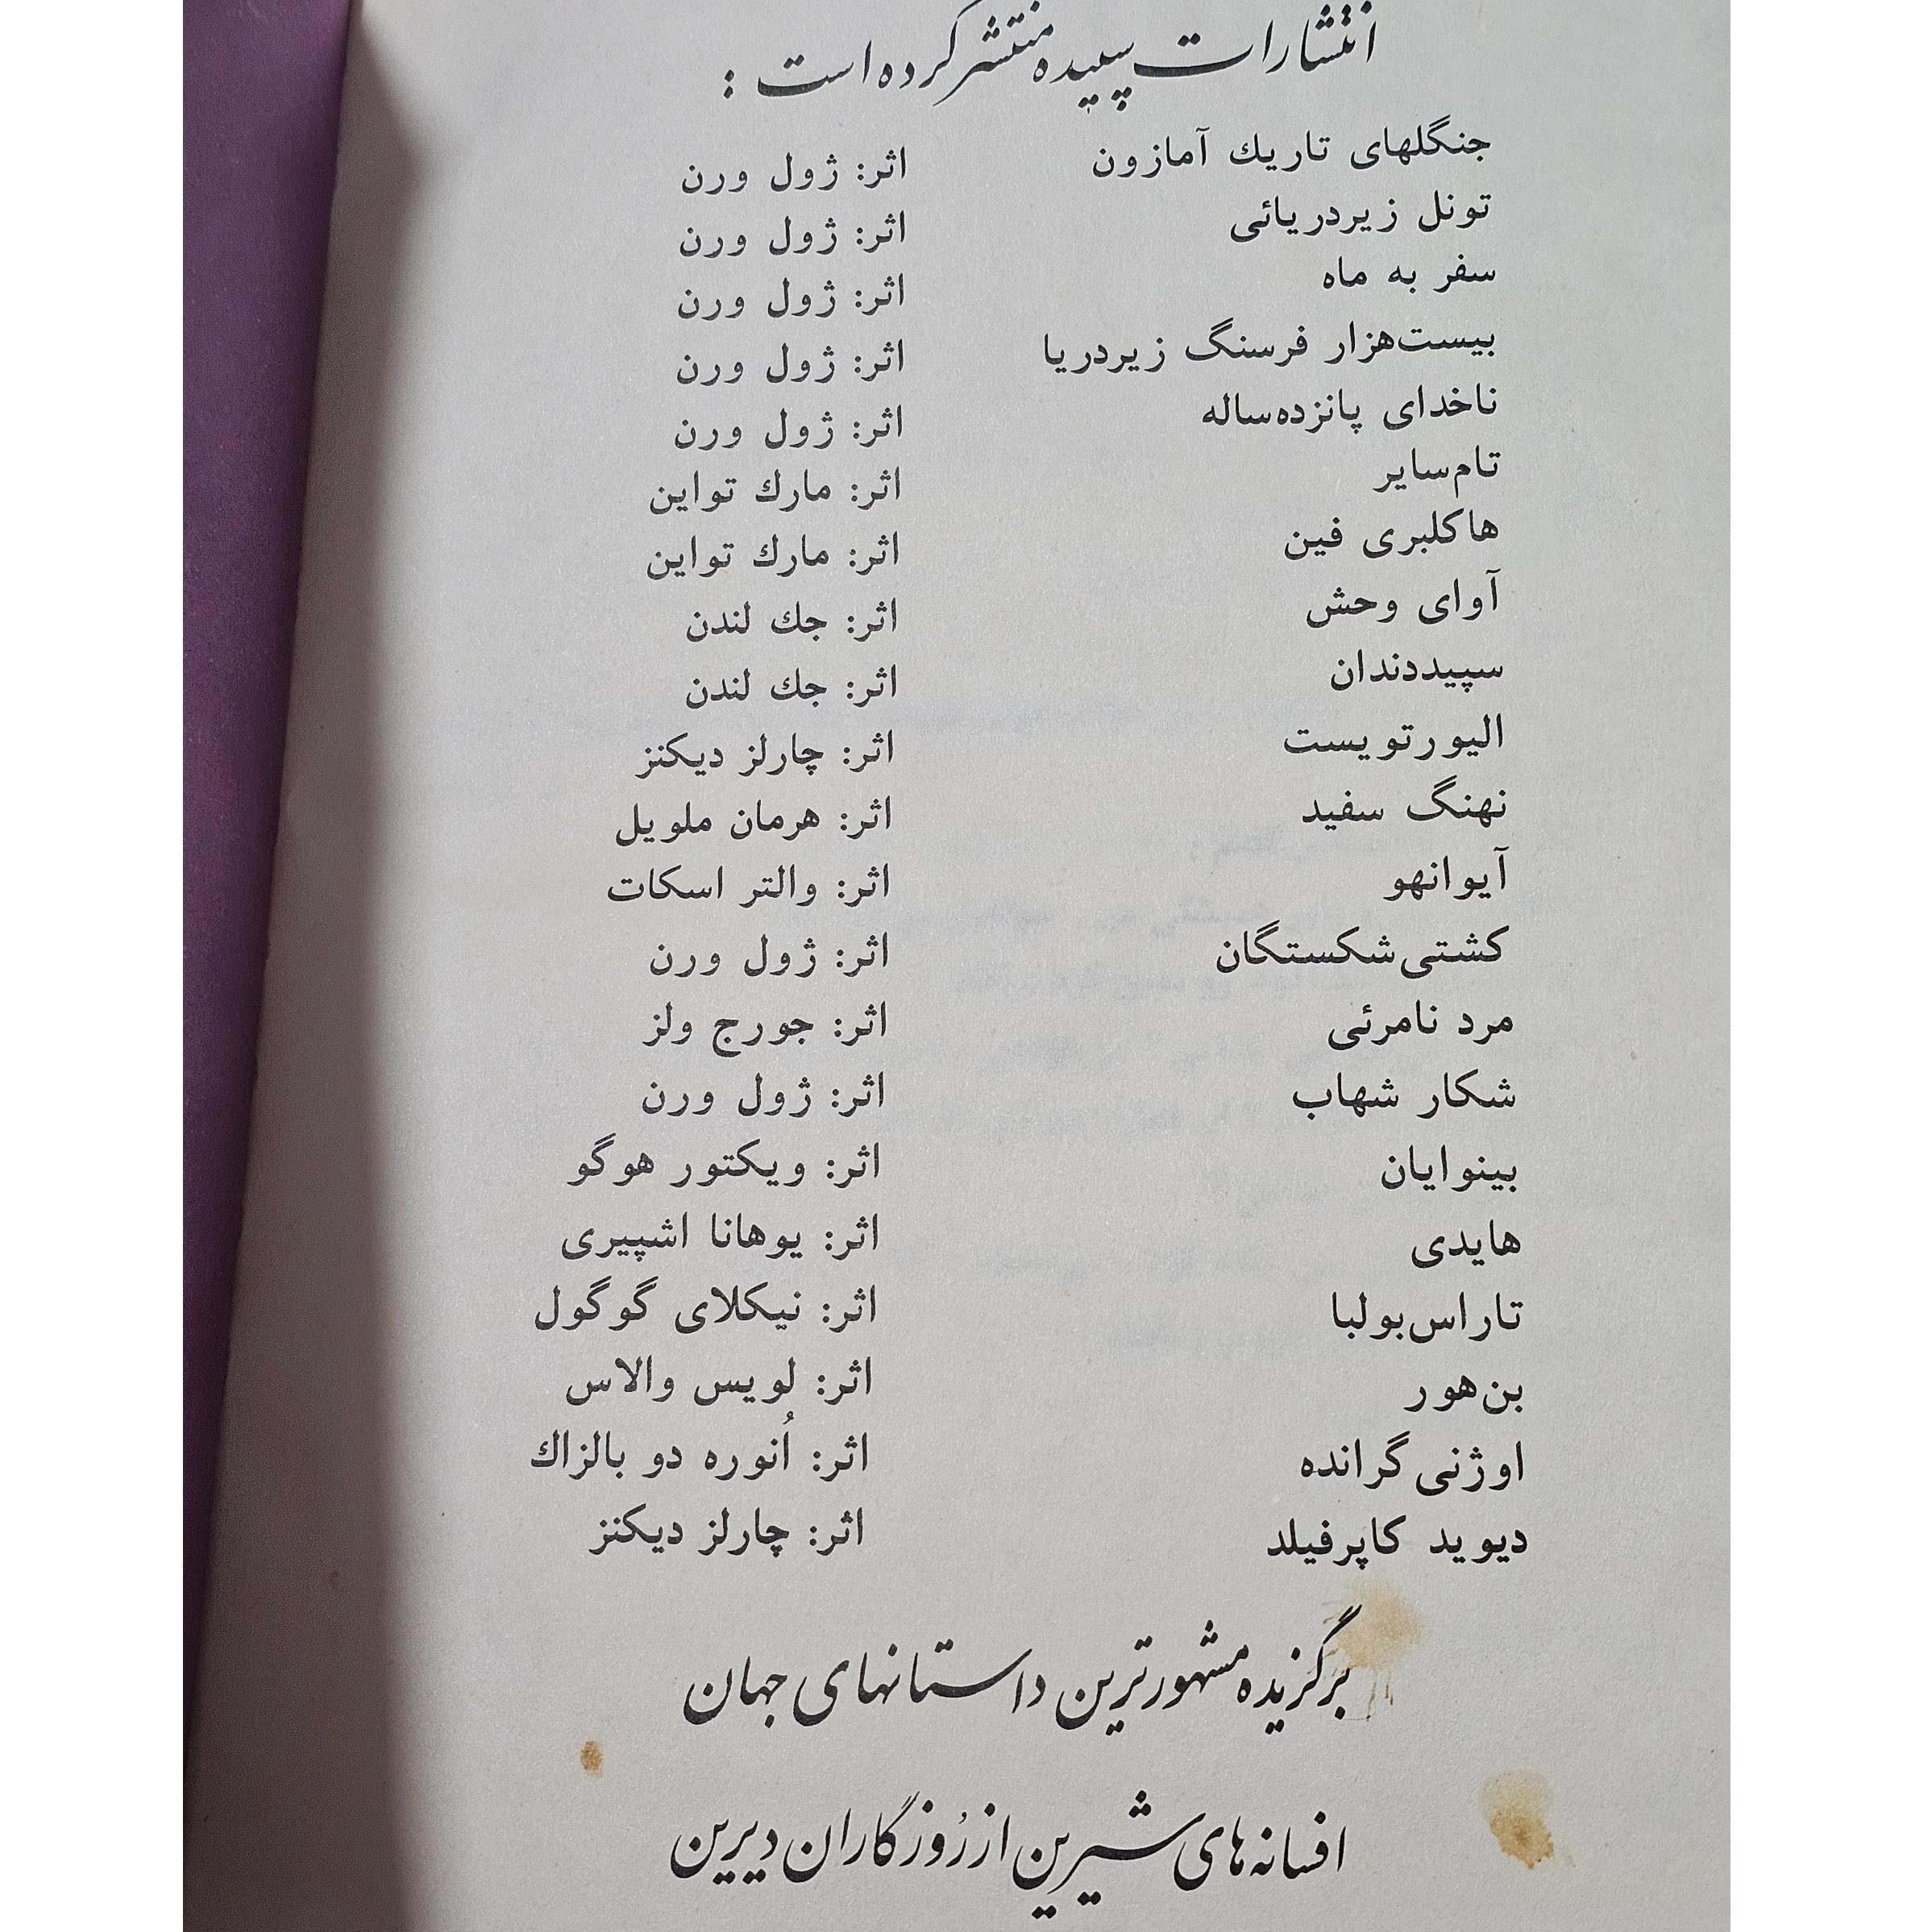 انتشارات سپیده منتشر کرده است :
جنگلهای تاریك آمازون اثر: ژول ورن
تونل زیردریائی اثر: ژول ورن
سفر به ماه اثر: ژول ورن
بیست‌هزار فرسنگ زیردریا اثر: ژول ورن
ناخدای پانزده‌ساله اثر: ژول ورن
تام‌سایر اثر: مارك تواین
هاکلبری فین اثر: مارك تواین
آوای وحش اثر: جك لندن
سپیددندان اثر: جك لندن
الیورتویست اثر: چارلز دیکنز
نهنگ سفید اثر: هرمان ملویل
آیوانهو اثر: والتر اسکات
کشتی‌شکستگان اثر: ژول ورن
مرد نامرئی اثر: جورج ولز
شکار شهاب اثر: ژول ورن
بینوایان اثر: ویکتور هوگو
هایدی اثر: یوهانا اشپیری
تاراس‌بولبا اثر: نیکلای گوگول
بن‌هور اثر: لویس والاس
اوژنی‌گرانده اثر: اُنوره دو بالزاك
دیوید کاپرفیلد اثر: چارلز دیکنز
برگزیده مشهورترین داستانهای جهان
افسانه‌های شیرین از رُوزگاران دیرین